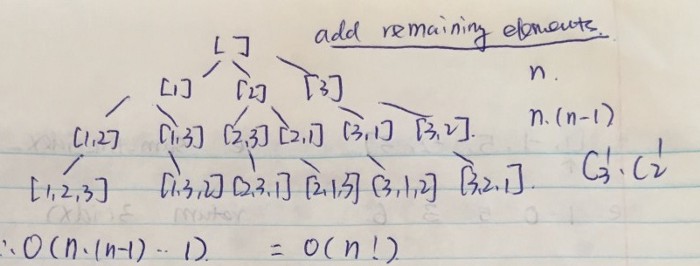 add remaining elements.
[ ]
[1] [2] [3] n.
[1,2] [1,3] [2,3] [2,1] [3,1] [3,2]. n.(n-1)
[1,2,3] [1,3,2] [2,3,1] [2,1,3] [3,1,2] [3,2,1]. C₃¹.C₂¹
∴ O(n.(n-1)...1) = O(n!)